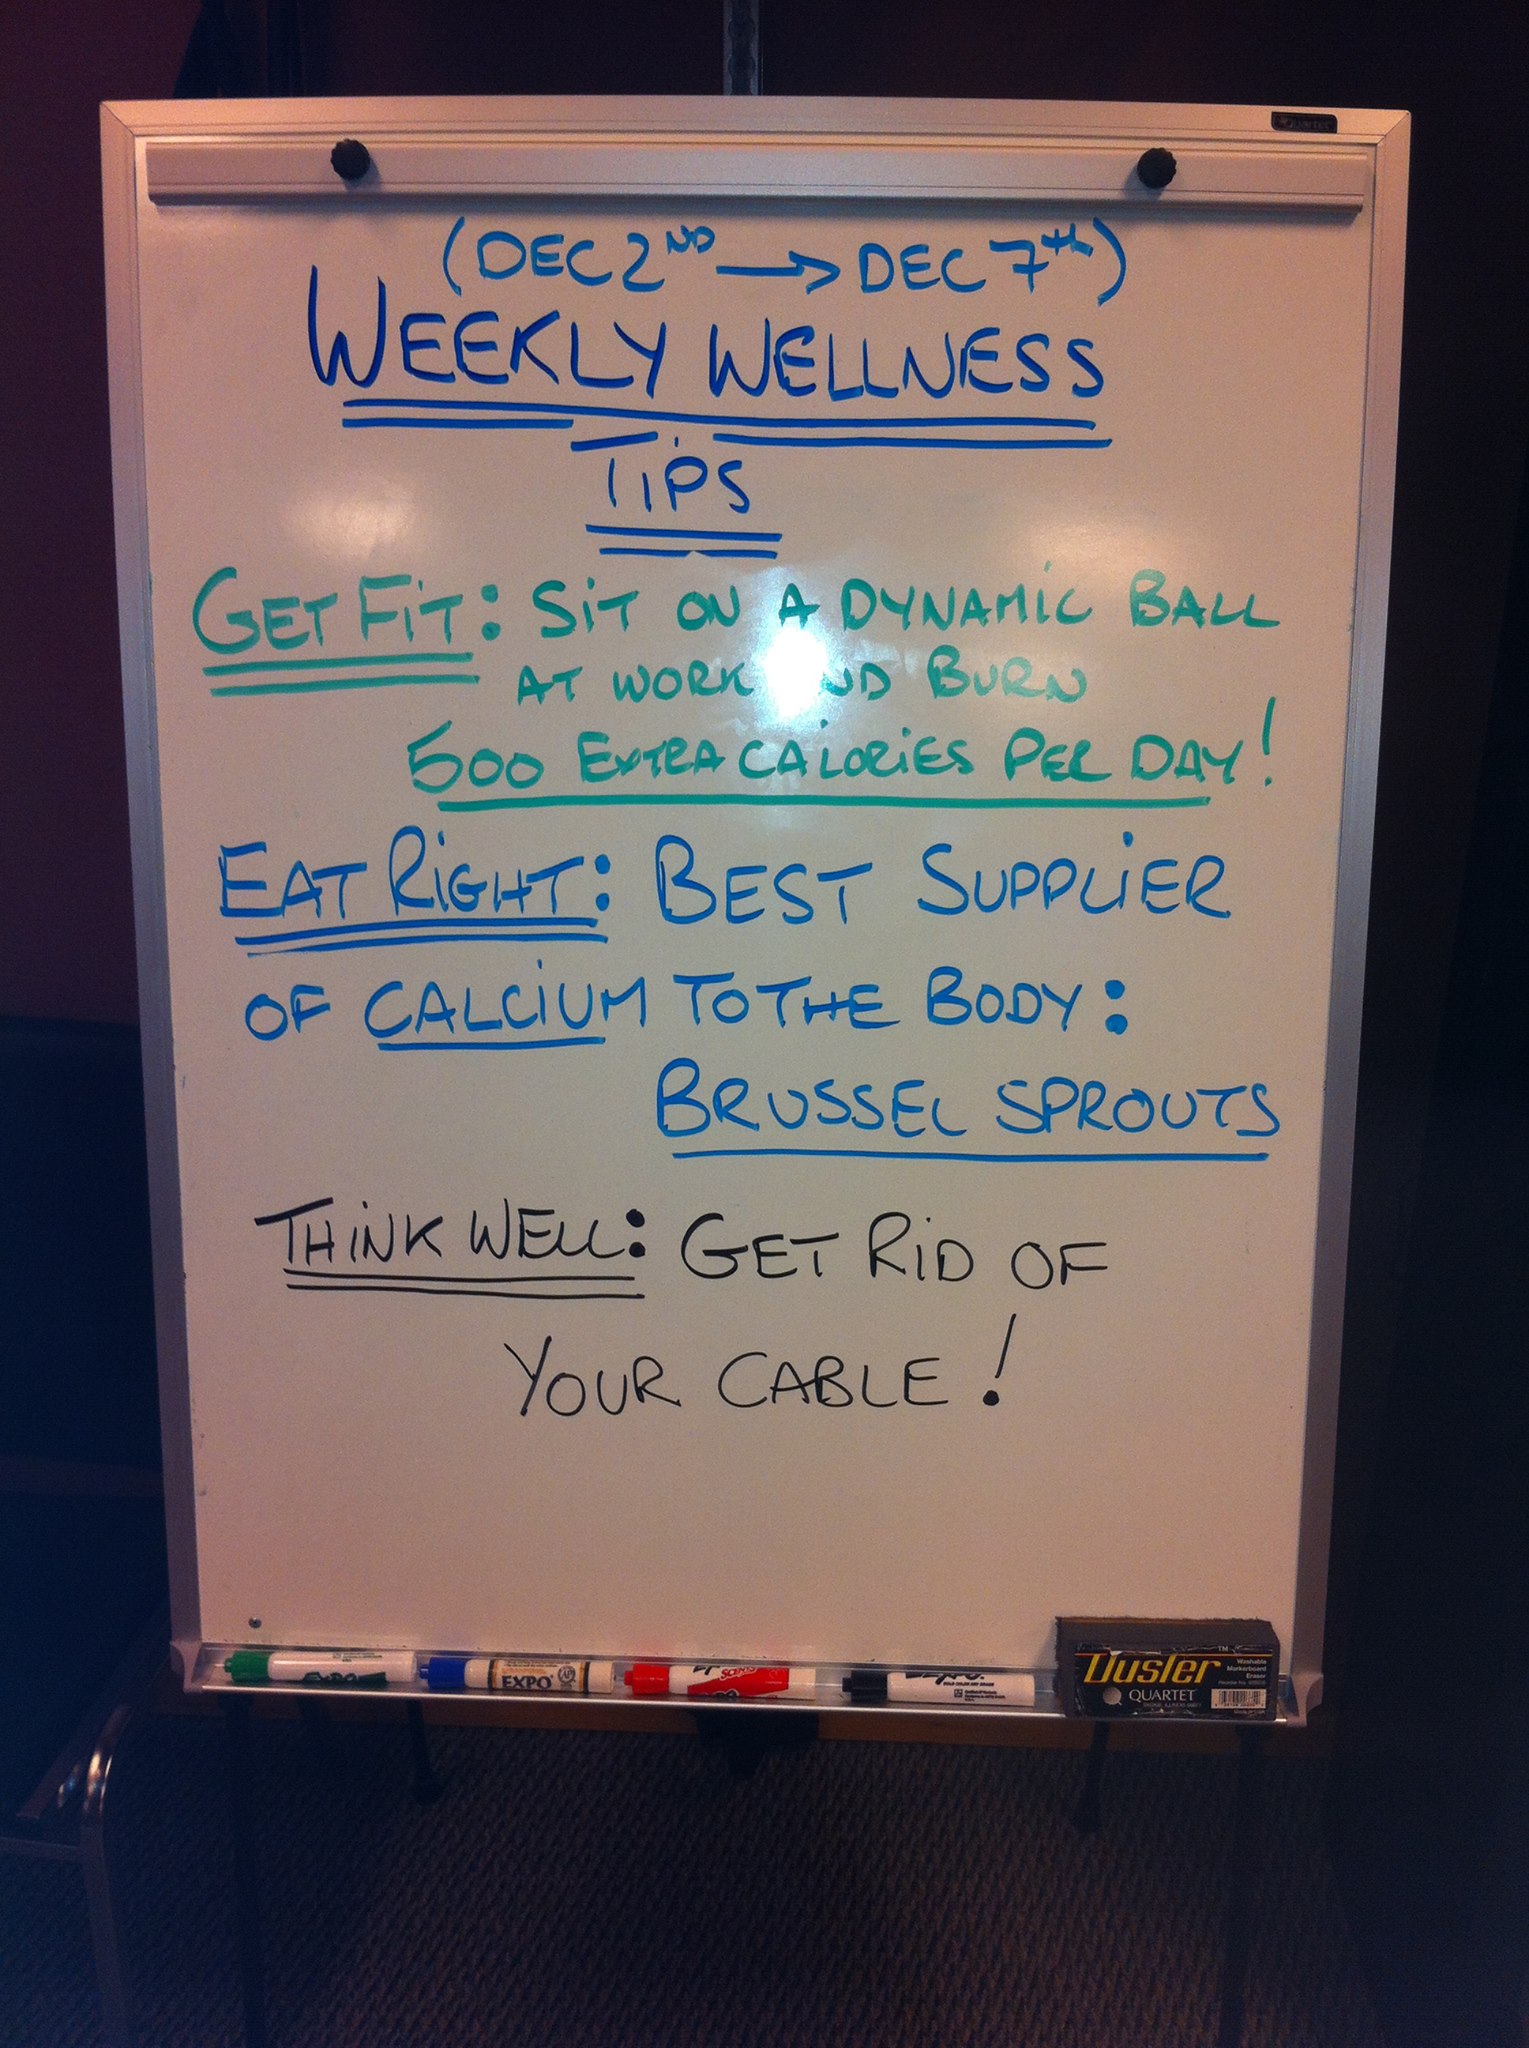 (DEC 2ND → DEC 7th)
WEEKLY WELLNESS
TiPS
GET FiT: SiT ON A DYNAMiC BALL
AT WORK AND BURN
500 EXTRA CALORiES PER DAY!
EAT RiGHT: BEST SUPPLiER
OF CALCiUM TO THE BODY:
BRUSSEL SPROUTS
THiNK WELL: GET RiD OF
YOUR CABLE!
EXPO
EXPO
Duster
QUARTET
Washable
Markerboard
Eraser